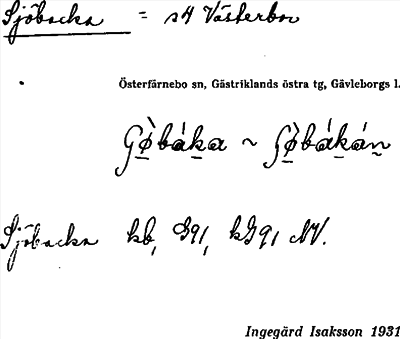 Sjöbacka = s4 Västerbor
Österfärnebo sn, Gästriklands östra tg, Gävleborgs l.
Sjöbacka kb, G91, kG91 NV.
Ingegärd Isaksson 1931